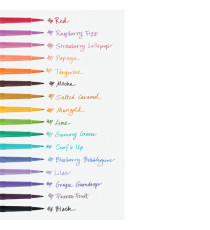 Red
Raspberry Fizz
Strawberry Lollipop
Papaya
Tangerine
Mocha
Salted Caramel
Marigold
Lime
Gummy Green
Surf's Up
Blueberry Bubblegum
Lilac
Grape Gumdrop
Passion Fruit
Black